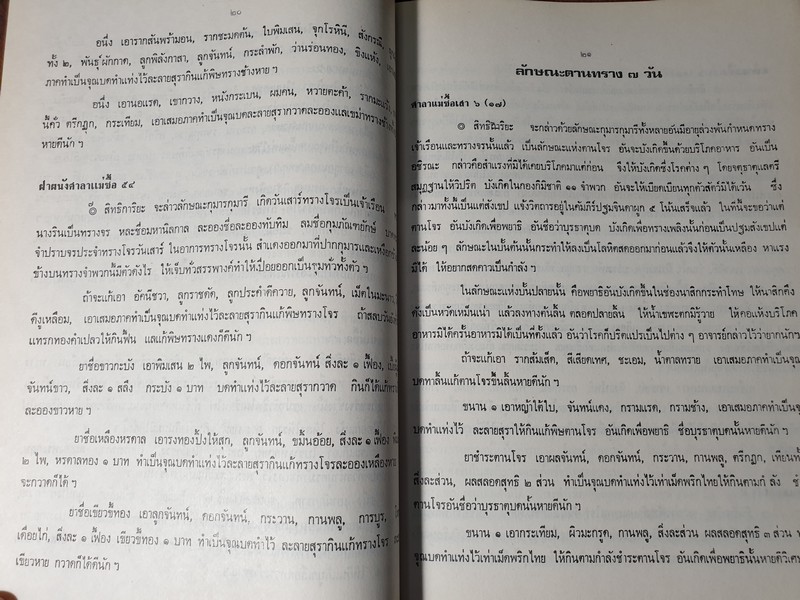 ๒๐
อนึ่ง เอารากสันพร้ามอน, รากชะมดต้น, ใบพิมเสน, จุกโรหินี,
ทั้ง ๒, พันธุ์ผักกาด, ลูกพิลังกาสา, ลูกจันทน์, กระลำพัก, ว่านร่อนทอง, ขิงแห้ง,
ภาคทำเป็นจุณบดทำแท่งไว้ละลายสุรากินแก้พิษทรางช้างหาย ฯ
อนึ่ง เอานอแรด, เขากวาง, หนังกระเบน, ผมคน, หวายตะค้า,
นี้คั่ว ตรีกฏุก, กระเทียม, เอาเสมอภาคทำเป็นจุณบดละลายสุรากวาดละอองแลเขม่าทราง
หายดีนัก ฯ
ฝาผนังศาลาแม่ซื้อ ๕๔
๏ สิทธิการิยะ จะล่าวลักษณะกุมารกุมารี เกิดวันเสาร์ทรางโจรเป็นเจ้าเรือน
นางรินเป็นทรางจร หละชื่อมหานิลกาล ละอองชื่อละอองทับทิม ลมชื่อกุมภัณฑยักษ์
จำปราบจรประจำทรางโจรวันเสาร์ ในอาการทรางโจรนั้น สำแดงออกมาที่ปากกุมารและเหงือก
ข้างบนทรางจำพวกนี้มีตัวดังไร ให้เจ็บทั่วสรรพางค์ทำให้เปื่อยออกเป็นขุมทั่วทั้งตัว ฯ
ถ้าจะแก้เอา อัคนีชวา, ลูกราชดัด, ลูกประคำดีควาย, ลูกจันทน์,
ดีงูเหลือม, เอาเสมอภาคทำเป็นจุณบดทำแท่งไว้ละลายสุรากินแก้พิษทรางโจร
แทรกทองคำเปลวให้กินฟื้น แลแก้พิษทรางแดงก็ดีนัก ฯ
ยาชื่อขาวกะบัง เอาพิมเสน ๒ ไพ, ลูกจันทน์, ดอกจันทน์ สิ่งละ ๑ เฟื้อง,
จันทน์ขาว, สิ่งละ ๑ สลึง กระบัง ๑ บาท บดทำแท่งไว้ละลายสุรากวาด กินก็ได้แก้
ละอองขาวหาย ฯ
ยาชื่อเหลืองหรดาล เอารงทองปิ้งให้สุก, ลูกจันทน์, ขมิ้นอ้อย, สิ่งละ ๑ เฟื้อง
๒ ไพ, หรดาลทอง ๑ บาท ทำเป็นจุณบดทำแท่งไว้ละลายสุรากินแก้ทรางโจรละอองเหลืองหาย
จะกวาดก็ได้ ฯ
ยาชื่อเขียวขี้ทอง เอาลูกจันทน์, ดอกจันทน์, กระวาน, กานพลู, การบูร,
เดือยไก่, สิ่งละ ๑ เฟื้อง เขียวขี้ทอง ๑ บาท ทำเป็นจุณบดทำไว้ ละลายสุรากินแก้ทรางโจร
เขียวหาย กวาดก็ได้ดีนัก ฯ
๒๑
ลักษณะตานทราง ๗ วัน
ศาลาแม่ซื้อเสา ๖ (๑๗)
๏ สิทธิการิยะ จะกล่าวด้วยลักษณะกุมารกุมารีทั้งหลายอันมีอายุล่วงพ้นกำหนดทราง
เจ้าเรือนและทรางจรนั้นแล้ว เป็นลักษณะแห่งตานโจร อันจะบังเกิดขึ้นด้วยบริโภคอาหาร อันเป็น
อชิรณะ กล่าวคือสำแรงที่มิได้เคยบริโภคมาแต่ก่อน จึงให้บังเกิดซึ่งโรคต่าง ๆ โดยจตุธาตุแลตรี
สมุฏฐานให้วิปริต บังเกิดในกองกิมิชาติ ๑๑ จำพวก อันจะให้เบียดเบียนทุกตัวสัตว์มิได้เว้น ซึ่ง
กล่าวมาทั้งนี้เป็นแต่สังเขป แจ้งวิตถารอยู่ในคัมภีร์ปฐมจินดาผูก ๕ โน้นเสร็จแล้ว ในที่นี้จะขอว่าแต่
ตานโจร อันบังเกิดเพื่อพยาธิ อันชื่อว่าบุรธาตุบด บังเกิดเพื่อทรางเพลิงนั้นก่อนเป็นปฐมสังเขปแต่
ละน้อย ๆ ลักษณะในเบื้องต้นนั้นกระทำให้ลงเป็นโลหิตสดออกมาก่อนแล้วจึงให้ตัวนั้นเหลือง หาแรง
มิได้ ให้อยากสดคาวเป็นกำลัง ฯ
ในลักษณะแห่งบั้นปลายนั้น คือพยาธิอันบังเกิดขึ้นในช่องนาสิกกระทำโทษ ให้นาสิกตึง
ดังเป็นหวัดเหม็นเน่า แล้วลงทางต้นลิ้น ตลอดปลายลิ้น ให้น้ำเขฬะตกมิรู้วาย ให้คอแห้งบริโภค
อาหารมิได้ครั้นอาหารมิได้เป็นที่ตั้งแล้ว อันว่าโรคก็ปริตแปรเป็นไปต่าง ๆ อาจารย์กล่าวไว้ว่ายากนัก ฯ
ถ้าจะแก้เอา รากส้มเส็ด, สีเสียดเทศ, ชะเอม, น้ำตาลทราย เอาเสมอภาคทำเป็นจุณ
บดทาลิ้นแก้ตานโจรขึ้นลิ้นหายดีนัก ฯ
ขนาน ๑ เอาหญ้าใต้ใบ, จันทน์แดง, กรามแรด, กรามช้าง, เอาเสมอภาคทำเป็นจุณ
บดทำแท่งไว้ ละลายสุราให้กินแก้พิษตานโจร อันเกิดเพื่อพยาธิ ชื่อบุรธาตุบดนั้นหายดีนัก ฯ
ยาชำระตานโจร เอาผลจันทน์, ดอกจันทน์, กระวาน, กานพลู, ตรีกฏุก,
สิ่งละส่วน, ผลสลอดสุทธิ ๒ ส่วน ทำเป็นจุณบดทำแท่งไว้เท่าเม็ดพริกไทยให้กินตามกำลัง
ตานโจรอันชื่อว่าบุรธาตุบดนั้นหายดีนัก ฯ
ขนาน ๑ เอากระเทียม, ผิวมะกรูด, กานพลู, สิ่งละส่วน ผลสลอดสุทธิ ๓ ส่วน
จุณบดทำแท่งไว้เท่าเม็ดพริกไทย ให้กินตามกำลังชำระตานโจร อันเกิดเพื่อพยาธินั้นหายดีวิเศษ